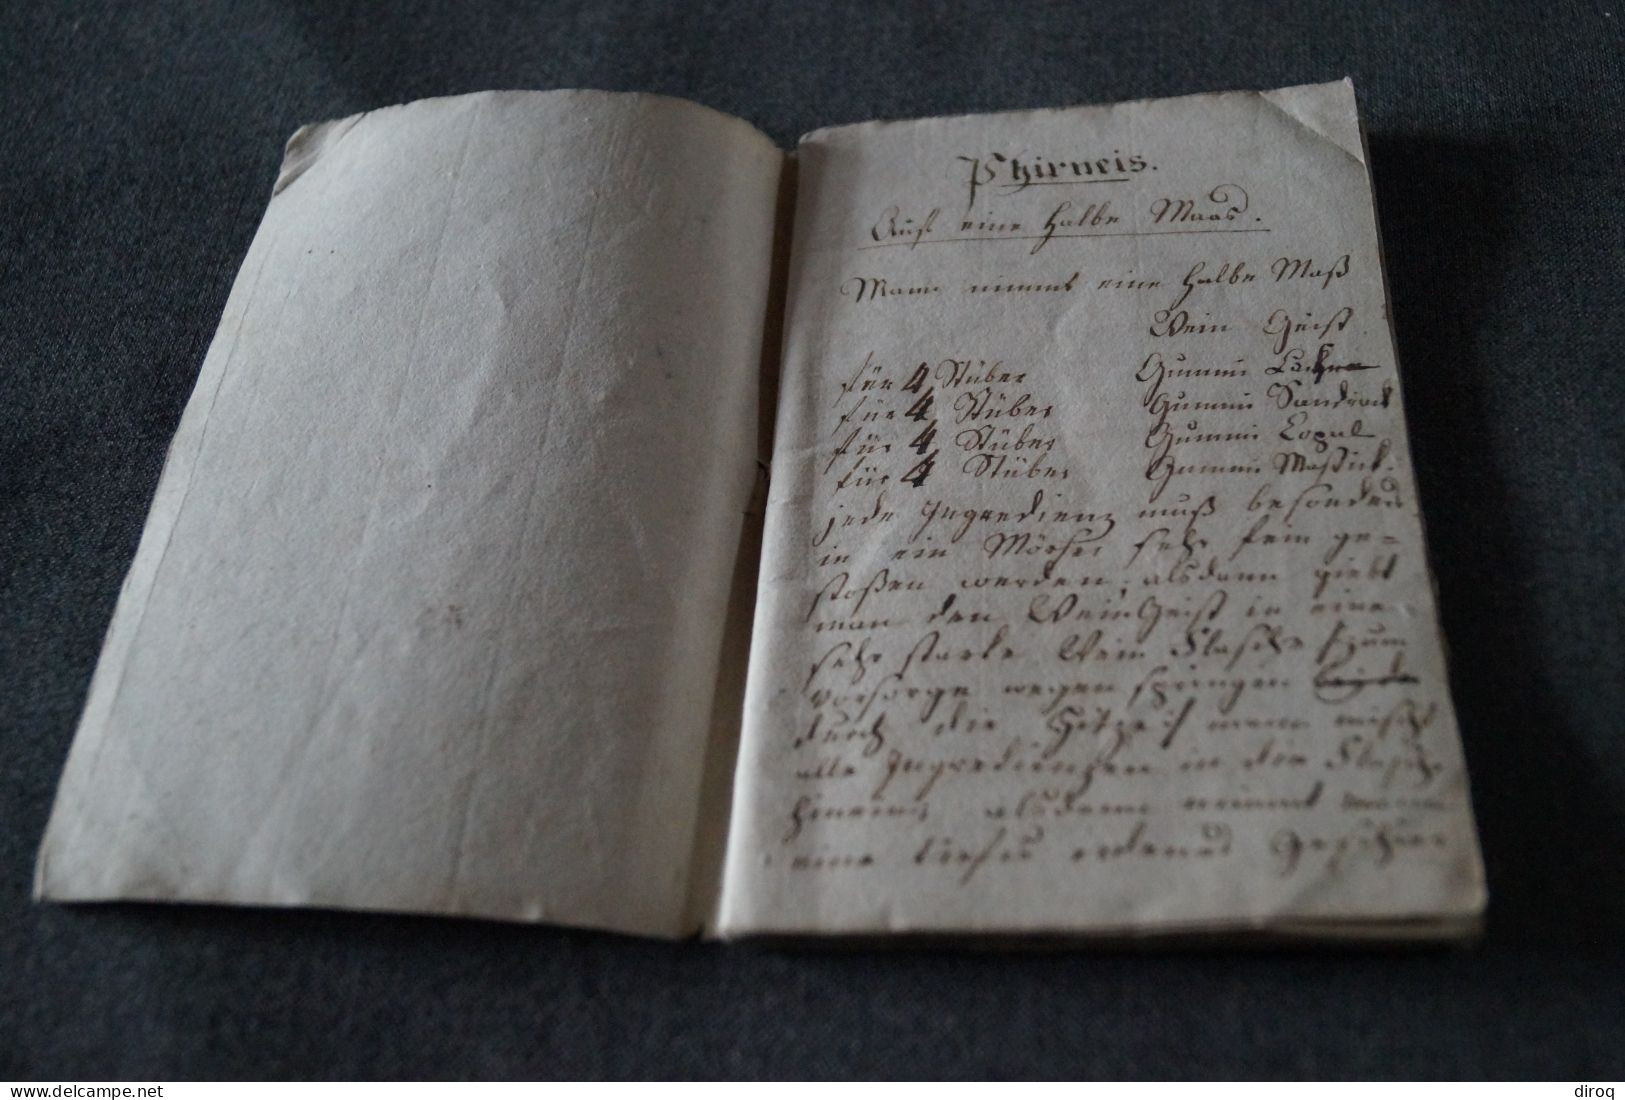 Phirneis.
Auf eine halbe Maas.
Mann nimmt eine halbe Maß
Wein Geist
für 4 Stüber Gummi
für 4 Stüber Gummi Sandrack
für 4 Stüber Gummi Copal
für 4 Stüber Gummi Mastick.
jede Ingredienz muß besonders
in ein Mörser sehr fein ge=
stoßen werden, alsdann giebt
man den WeinGeist in eine
sehr starke Wein Flasche zum
vorsorge wegen springen
durch die Hitze mann mischt
alle Ingredienzen in die Flasche
hinein, alsdann nimmt mann
eine tiefes erdenes Geschirr
© www.delcampe.net
diroq